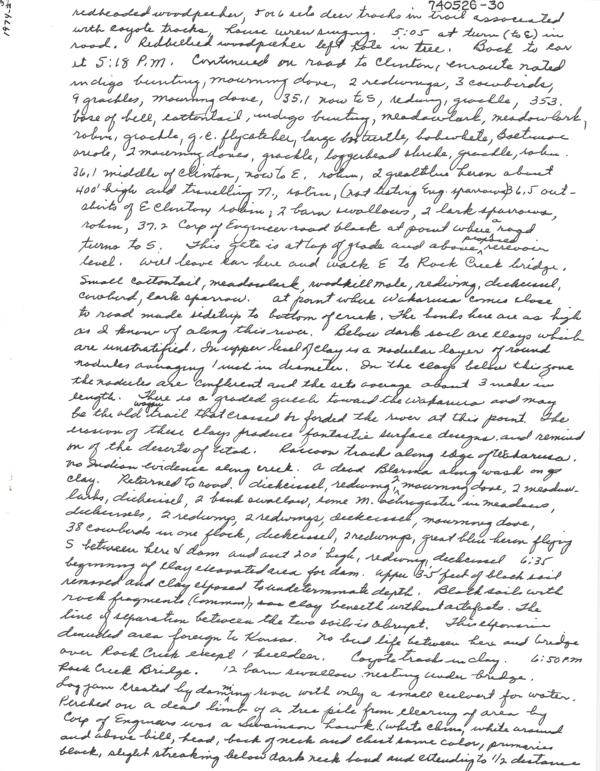 740526-30
1974-2
redheaded woodpecker, 5 or 6 sets deer tracks in trail associated
with coyote tracks, house wren singing. 5:05 at turn (to E) in
road. Redbellied woodpecker left hole in tree. Back to car
at 5:18 P.M. Continued on road to Clinton, enroute noted
indigo bunting, mourning dove, 2 redwings, 3 cowbirds,
9 grackles, mourning dove, 35.1 now to S, redwing, grackle, 35.3
base of hill, cottontail, indigo bunting, meadowlark, meadowlark,
robin, grackle, g.c. flycatcher, large box turtle, bobwhite, Baltimore
oriole, 2 mourning doves, grackle, loggerhead shrike, grackle, robin.
36.1 middle of Clinton, now to E. robin, 2 great blue heron about
400' high and travelling N., robin, (not listing Eng. sparrows) 36.5 out-
skirts of E Clinton robin, 2 barn swallows, 2 lark sparrows,
robin, 37.2 Corp of Engineer road block at point where a road
turns to S. This gate is at top of grade and above proposed reservoir
level. Will leave car here and walk E to Rock Creek bridge.
Small cottontail, meadowlark, roadkill mole, redwing, dickcissel,
cowbird, lark sparrow. At point where Wakarusa comes close
to road made sidetrip to bottom of creek. The banks here are as high
as I know of along this river. Below dark soil are clays which
are unstratified. In upper level of clay is a nodular layer of round
nodules averaging 1 inch in diameter. In the clays below this zone
the nodules are confluent and the sets average about 3 inches in
length. There is a graded gulch toward the Wakarusa and may
be the old wagon trail that crossed or forded the river at this point. The
erosion of these clays produce fantastic surface designs and remind
on of the deserts of Utah. Raccoon track along edge of Wakarusa.
No Indian evidence along creek. A dead Blarina along wash on
clay. Returned to road. dickcissel, redwing, 2 mourning dove, 2 meadow-
larks, dickcissel, 2 bank swallow, some M. ochrogaster in meadows,
dickcissels, 2 redwings, 2 redwings, dickcissel, mourning dove,
38 cowbirds in one flock, dickcissel, 2 redwings, great blue heron flying
S between here & dam and out 200' high, redwing, dickcissel 6:35
beginning of clay excavated area for dam. Upper 3-5 feet of black soil
removed and clay exposed to undeterminate depth. Black soil with
rock fragments (common), saw clay beneath without artefacts. The
line of separation between the two soils is abrupt. This expansive
denuded area foreign to Kansas. No bird life between here and bridge
over Rock Creek except 1 killdeer. Coyote track in clay. 6:50 PM
Rock Creek Bridge. 12 barn swallow nesting under bridge.
Log jam created by damming river with only a small culvert for water.
Perched on a dead limb of a tree pile from clearing of area by
Corp of Engineers was a Swainson hawk. (white chin, white around
and above bill, head, back of neck and chest same color, primaries
black, slight streaking below dark neck band and extending to 1/2 distance